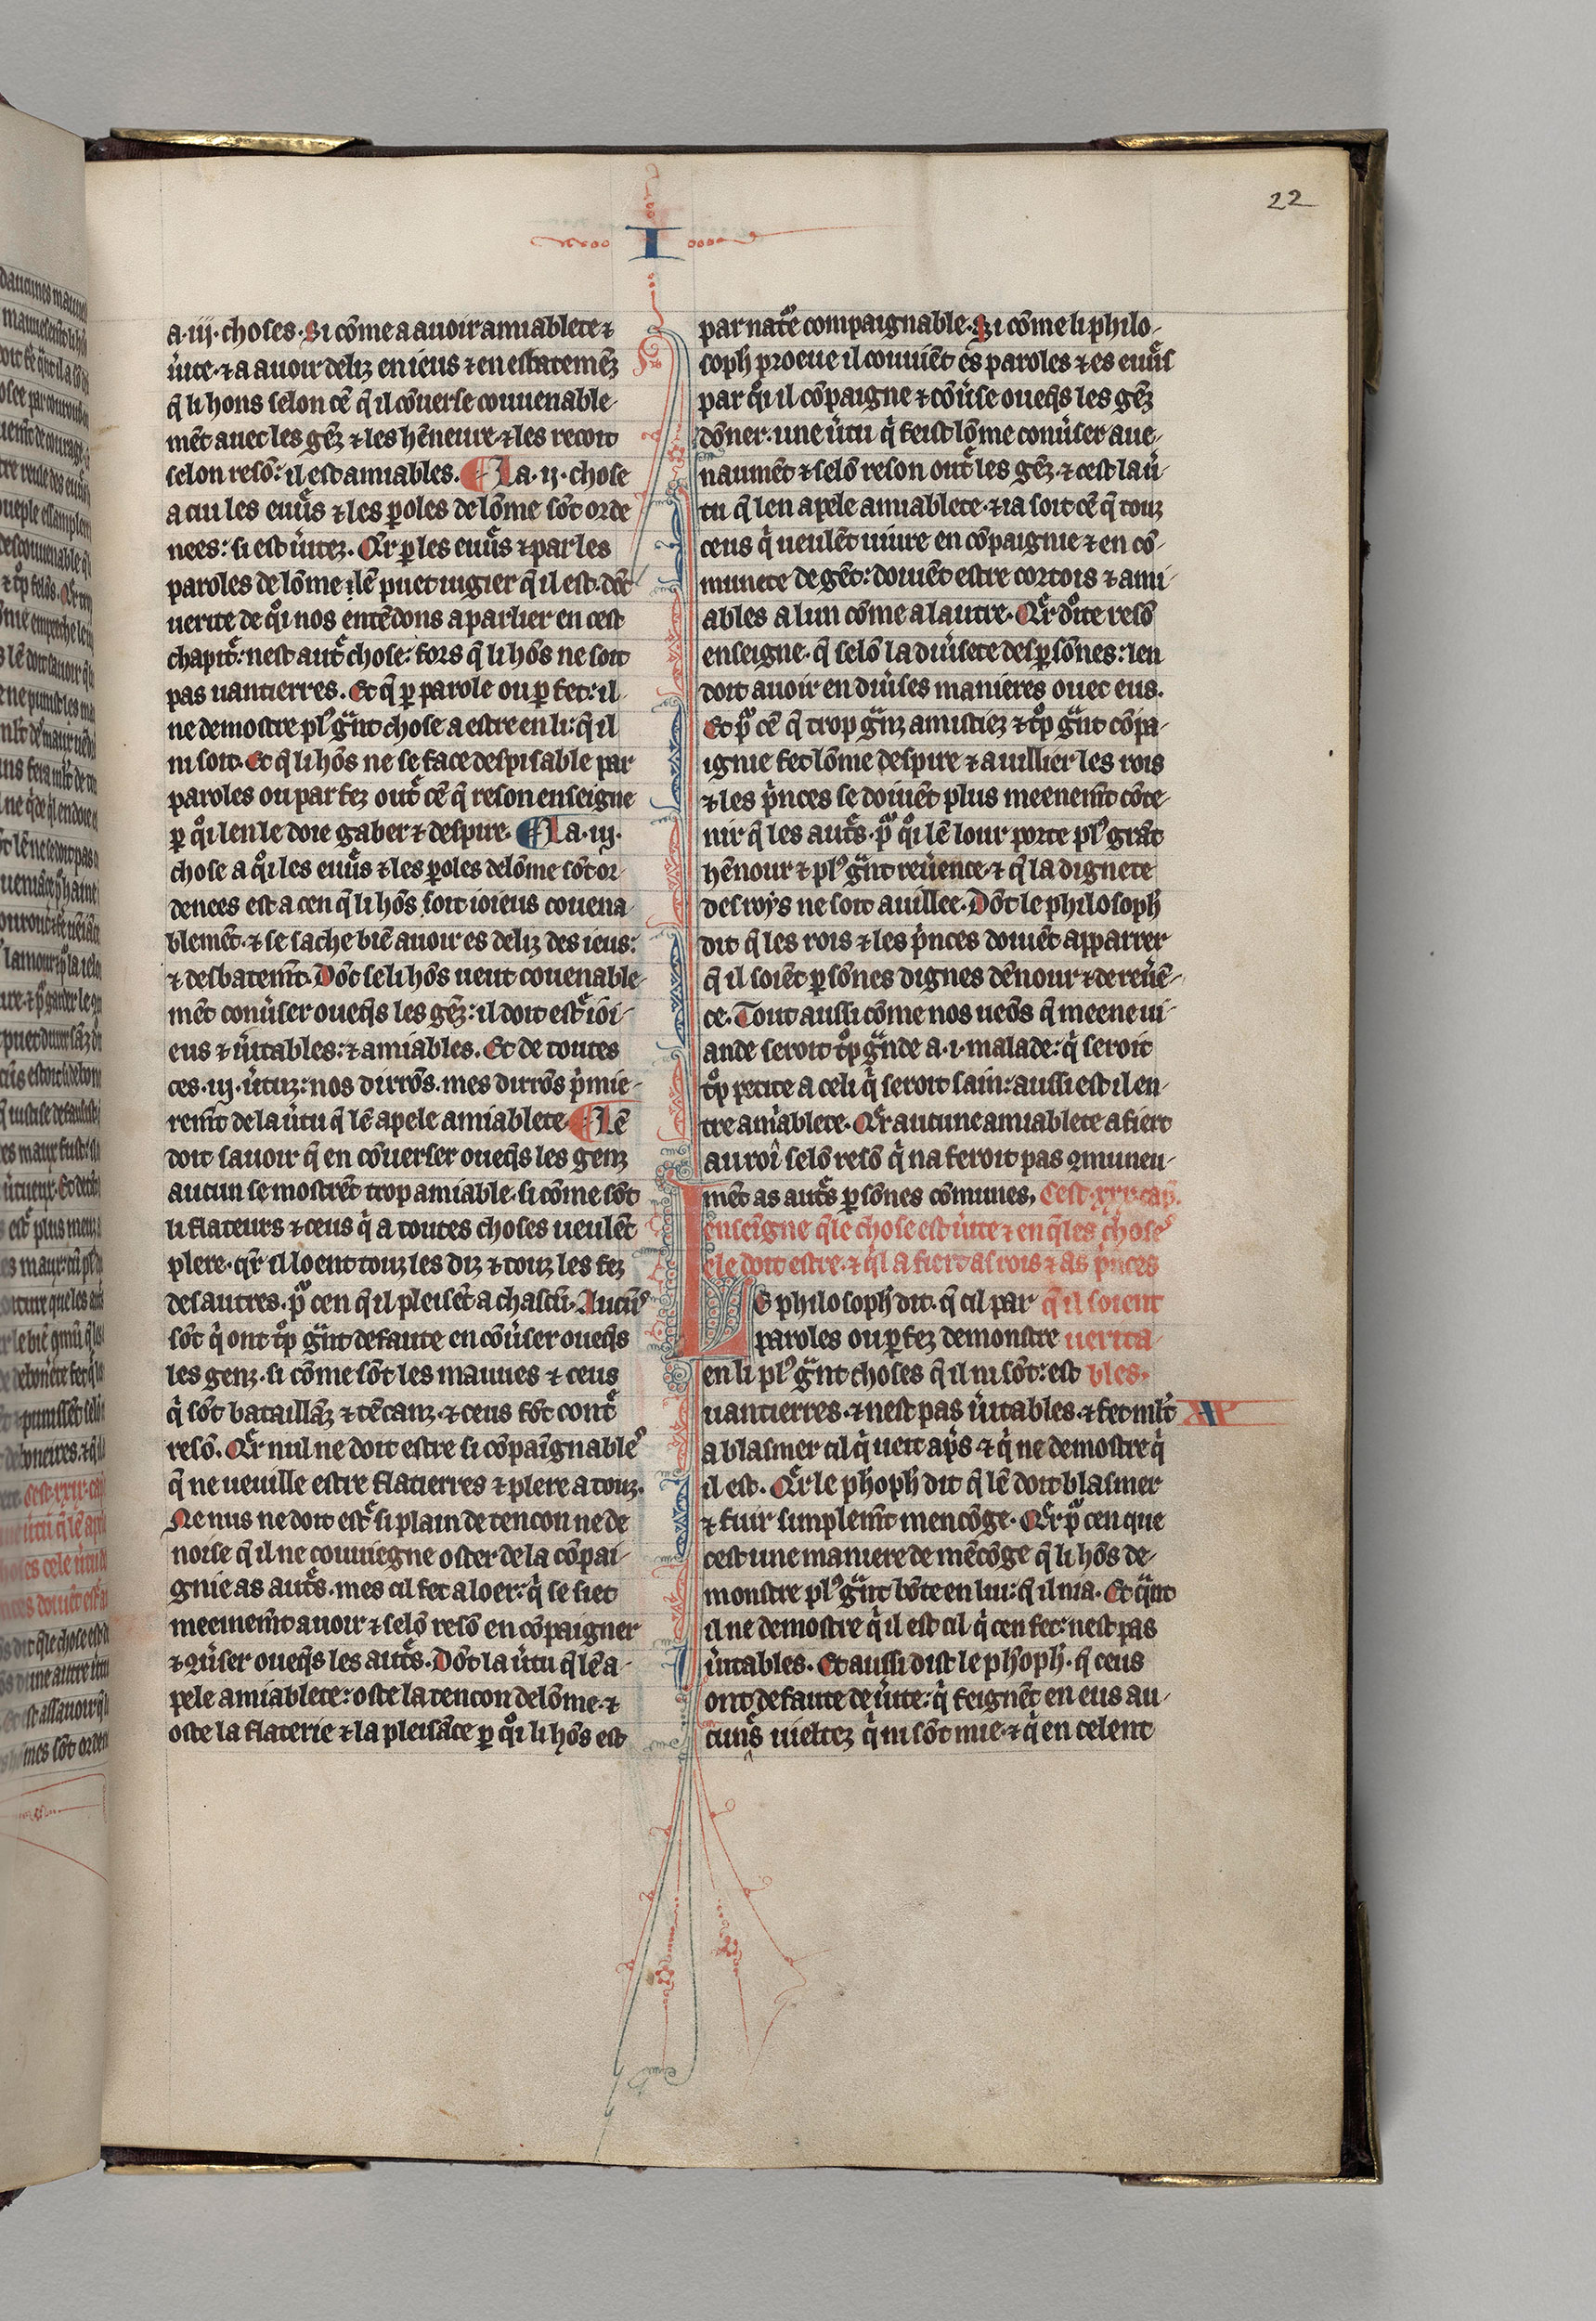 22
I
a·iij·choses·Si cōme a auoir amiablete ⁊
ůite·⁊ a auoir deliz en ieus ⁊ en esbatemēz
q̄ li hons selon cē q̄ il cōuerse couuenable-
mēt auec les gēz ⁊ les hēneure·⁊ les recoit
selon resō: il est amiables. ¶ La·ij·chose
a cui les euůs ⁊ les ꝑoles de lōme sōt orde
nees: si est ůitez. Q̄r ꝑ les euůs ⁊ par les
paroles de lōme·lē puet iugier q̄ il est·dōt
uerite de qͦi nos entēdons a parlier en cest
chapitͤ: nest autͤ chose: fors q̄ li hōs ne soit
pas uantierres. Et q̄ ꝑ parole ou ꝑ fet: il
ne demostre plꝰ gͣnt chose a estre en li: q̄ il
ni soit. Et q̄ li hōs ne se face despisable par
paroles ou par fez outͤ cē q̄ reson enseigne
ꝑ qͦi len le doie gaber ⁊ despire. ¶ La·iij·
chose a qͦi les euůs ⁊ les ꝑoles de lōme sōt or-
denees est a cen q̄ li hōs soit ioieus couena-
blemēt·⁊ se sache biē auoir es deliz des ieus:
⁊ desbatemt̄. Dōt se li hōs ueut couenable-
mēt conůser oueq̄s les gēz: il doit estͤ ioi-
eus ⁊ ůitables: ⁊ amiables. Et de toutes
ces·iij·ůtuz: nos dirrōs·mes dirrōs p̍mie-
remt̄ de la ůtu q̄ lē apele amiablete. ¶ Lē
doit sauoir q̄ en cōuerser oueq̄s les genz
aucun se mostrēt trop amiable·si cōme sōt
li flateurs ⁊ ceus q̍ a toutes choses ueulēt
plere·q̄r il loent touz les diz ⁊ touz les fez
des autres·pͦ cen q̄ il pleisēt a chascū·Aucūs
sōt q̍ ont tͦp gͣnt defaute en cōůser oueq̄s
les genz·si cōme sōt les mauues ⁊ ceus
q̍ sōt bataillāz ⁊ tēcanz·⁊ ceus fōt contͤ
resō. Q̄r nul ne doit estre si cōpaignables
q̄ ne ueuille estre flatierres ⁊ plere a touz.
Ne nus ne doit estͤ si plain de tencon ne de
noise q̄ il ne couuiegne oster de la cōpai-
gnie as autͤs·mes cil fet a loer: q̍ se siet
meenemt̄ auoir ⁊ selō resō en cōpaigner
⁊ ꝯůser oueq̄s les autͤs. Dōt la ůtu q̄ lē a-
pele amiablete: oste la tencon de lōme·⁊
oste la flaterie ⁊ la pleisāce ꝑ qͦi li hōs est
par natͤe compaignable·Si cōme li philo-
soph proeue il couuiēt es paroles ⁊ es euůs
par qͦi il cōpaigne ⁊ cōůse oueq̄s les gēz
dōner·une ůtu q̍ feist lōme conůser aue-
naumēt ⁊ selō reson outͤ les gēz·⁊ cest la ů-
tu q̄ len apele amiablete·⁊ ia soit cē q̄ touz
ceus q̍ ueulēt uiure en cōpaignie ⁊ en cō-
munete de gēt: doiuēt estre cortois ⁊ ami-
ables a lun cōme a lautre. Q̄r dͦite resō
enseigne·q̄ selō la diůsete des ꝑsōnes: len
doit auoir en diůses manieres ouec eus.
Et pͦ cē q̄ trop gͣnz amistiez ⁊ tͦp gͣnt cōpa-
ignie fet lōme despire ⁊ auillier les rois
⁊ les p̍nces se doiuēt plus meenemt̄ cōte-
nir q̄ les autͤs·pͦ qͦi lē lour porte plꝰ grāt
hēnour ⁊ plꝰ gͣnt reůence·⁊ q̄ la dignete
des roys ne soit auillee. Dōt le philosoph
dit q̄ les rois ⁊ les p̍nces doiuēt apparrer
q̄ il soiēt ꝑsōnes dignes dēnour ⁊ de reůē-
ce. Tout aussi cōme nos ueōs q̄ meene ui-
ande seroit tͦp gͣnde a·i·malade: q̍ seroit
tͦp petite a celi q̍ seroit sain: aussi est il en-
tre amiablete. Q̄r aucune amiablete afiert
au roi selō resō q̍ na feroit pas ꝯmuneu-
mēt as autͤs ꝑsōnes cōmunes, Cest·xxx·cap̄.
enseigne q̄le chose est ůite ⁊ en q̄les choses
ele doit estre·⁊ q̄l afiert as rois ⁊ as p̍nces
LE philosoph dit·q̄ cil par q̄ il soient
paroles ou ꝑ fez demonstre uerita-
en li plꝰ gͣnt choses q̄ il ni sōt: est bles.
uantierres·⁊ nest pas ůitables·⁊ fet mlt̄
a blasmer cil q̍ ueit ap̍s ⁊ q̍ ne demostre q̍
il est. Q̄r le phoph dit q̄ lē doit blasmer
⁊ fuir simplemt̄ mencōge. Q̄r pͦ cen que
cest une maniere de mēcōge q̄ li hōs de-
monstre plꝰ gͣnt bōte en lui: q̄ il nia. Et qͣnt
il ne demostre q̍ il est cil q̍ cen fet: nest pas
ůitables. Et aussi dist le phoph·q̄ ceus
ont defaute de ůite: q̍ feignēt en eus au-
cuns uieltez q̍ ni sōt mie·⁊ q̍ en celent